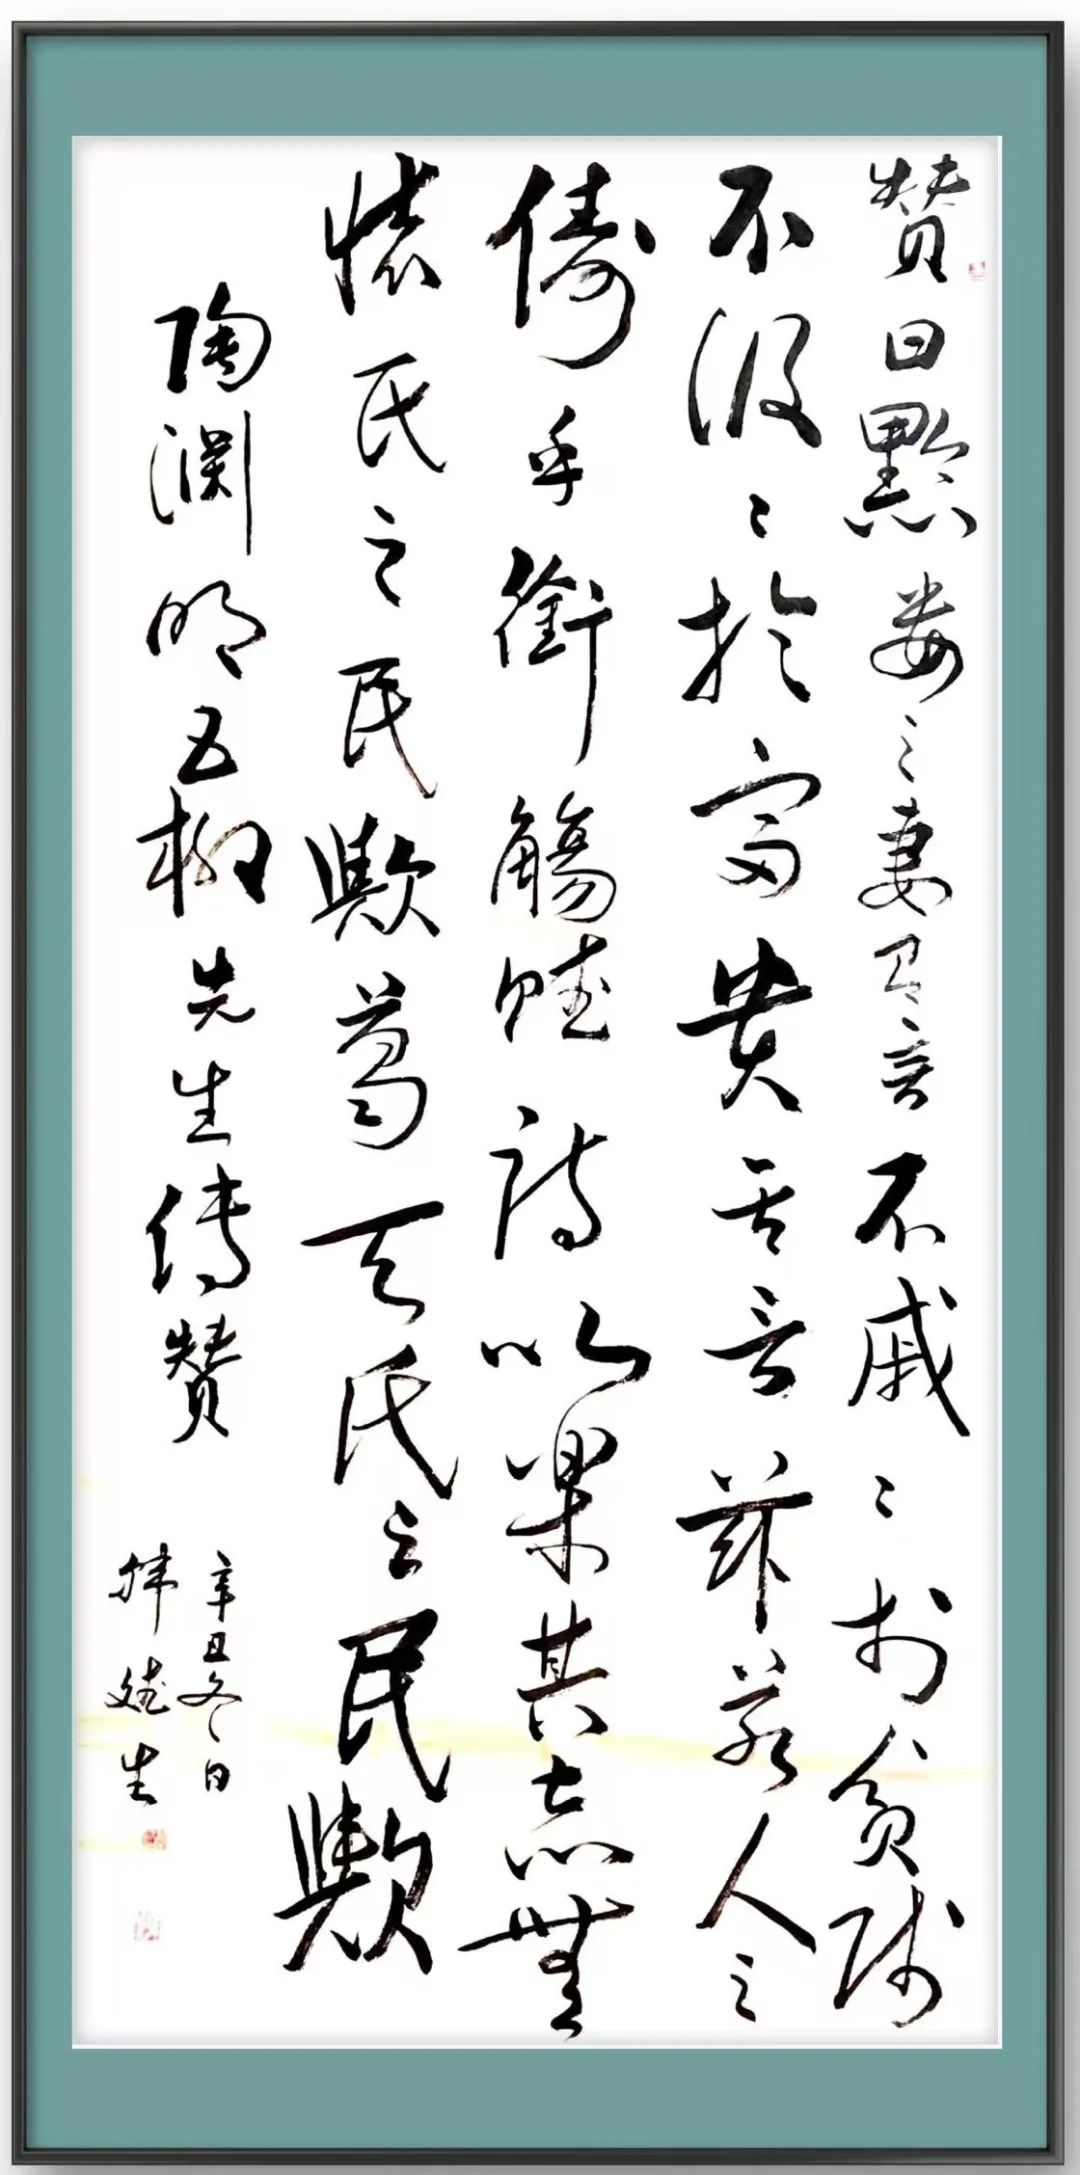 赞曰黔娄之妻有言不戚〻於貧賤
不汲〻於富貴其言茲若人之
儔乎銜觴賦詩以樂其志無
懷氏之民歟葛天氏之民歟
陶渊明五柳先生傳赞
辛丑冬日